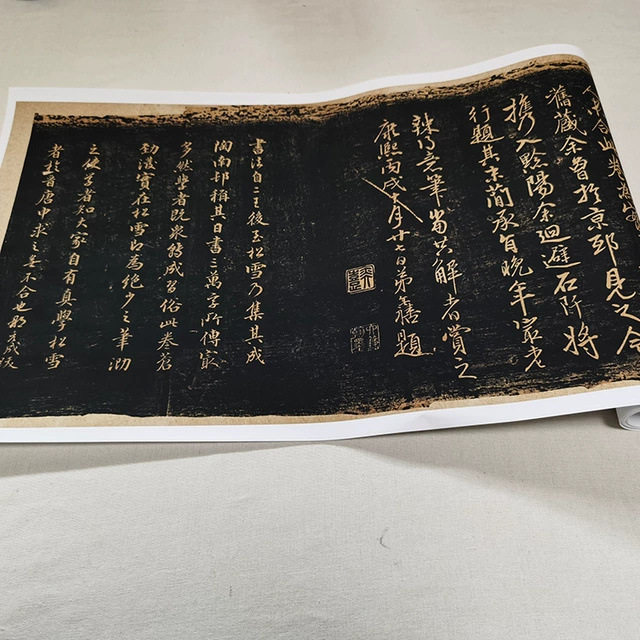 舊藏余曾於京邸見之今
携入黔陽余迴避石阡將
行題其末簡承旨晚年寂老
辣得意筆當共解者賞之
康熙丙戌十月廿七日弟熺題
書法自二王後至松雪乃集其成
聞南邨稱其日書三萬字所傳寂
多然學者既衆轉成習俗此卷蒼
勁淇實在松雪為絶少之筆沏
之使學者知大家自有真學松雪
者於晉唐中求之無不合也